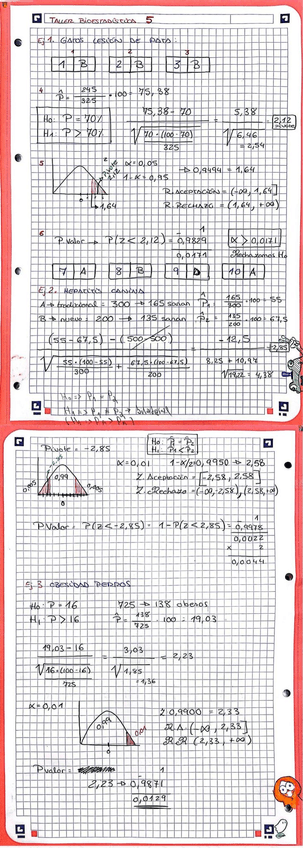 TALLER BIOESTADÍSTICA 5
Ej 1. GATOS LESIÓN DE PATA:
1 2 3
1 B 2 B 3 B
4 P̂ = 245/325 · 100 = 75,38
H0: P = 70%
H1: P > 70%
75,38 - 70 / √(70 · (100-70) / 325) = 5,38 / √6,46 = 2,54 = 2,12
5 α = 0,05
1-α = 0,95
→ 0,9494 = 1,64
R. ACEPTACIÓN = (-∞, 1,64]
R. RECHAZO = (1,64, +∞)
0 1,64
6 P valor → P(Z < 2,12) = 1 - 0,9829
0,0171
α > 0,0171
Rechazamos H0
7 A 8 B 9 D 10 A
Ej 2. HEPATITIS CANINA
A → tradicional = 300 → 165 sanan P̂1 = 165/300 · 100 = 55
B → nuevo = 200 → 135 sanan P̂2 = 135/200 · 100 = 67,5
(55 - 67,5) - / √(55 · (100-55) / 300 + 67,5 · (100-67,5) / 200) = -12,5 / 8,25 + 10,97 = -2,85
√19,22 = 4,38
H0 => P1 = P2
Pivote = -2,85
H0: P̂1 = P̂2
H1: P̂1 < P̂2
α = 0,01 1-α/2 = 0,9950 → 2,58
Z. Aceptación = [-2,58, 2,58]
Z. Rechazo = (-∞, -2,58), (2,58, +∞)
0,005 0,99 0,005
P Valor = P(Z < -2,85) = 1 - P(Z < 2,85) = 1 - 0,9978
0,0022
x 2
0,0044
Ej 3. OBESIDAD PERROS
H0: P = 16 725 → 138 obesos
H1: P > 16 P̂ = 138/725 · 100 = 19,03
19,03 - 16 / √(16 · (100-16) / 725) = 3,03 / √1,85 = 1,36 = 2,23
α = 0,01
0,99 0,01
0
Z 0,9900 = 2,33
R.A (-∞, 2,33]
R.R (2,33, +∞)
P valor = 1
2,23 → 0,9871
0,0129